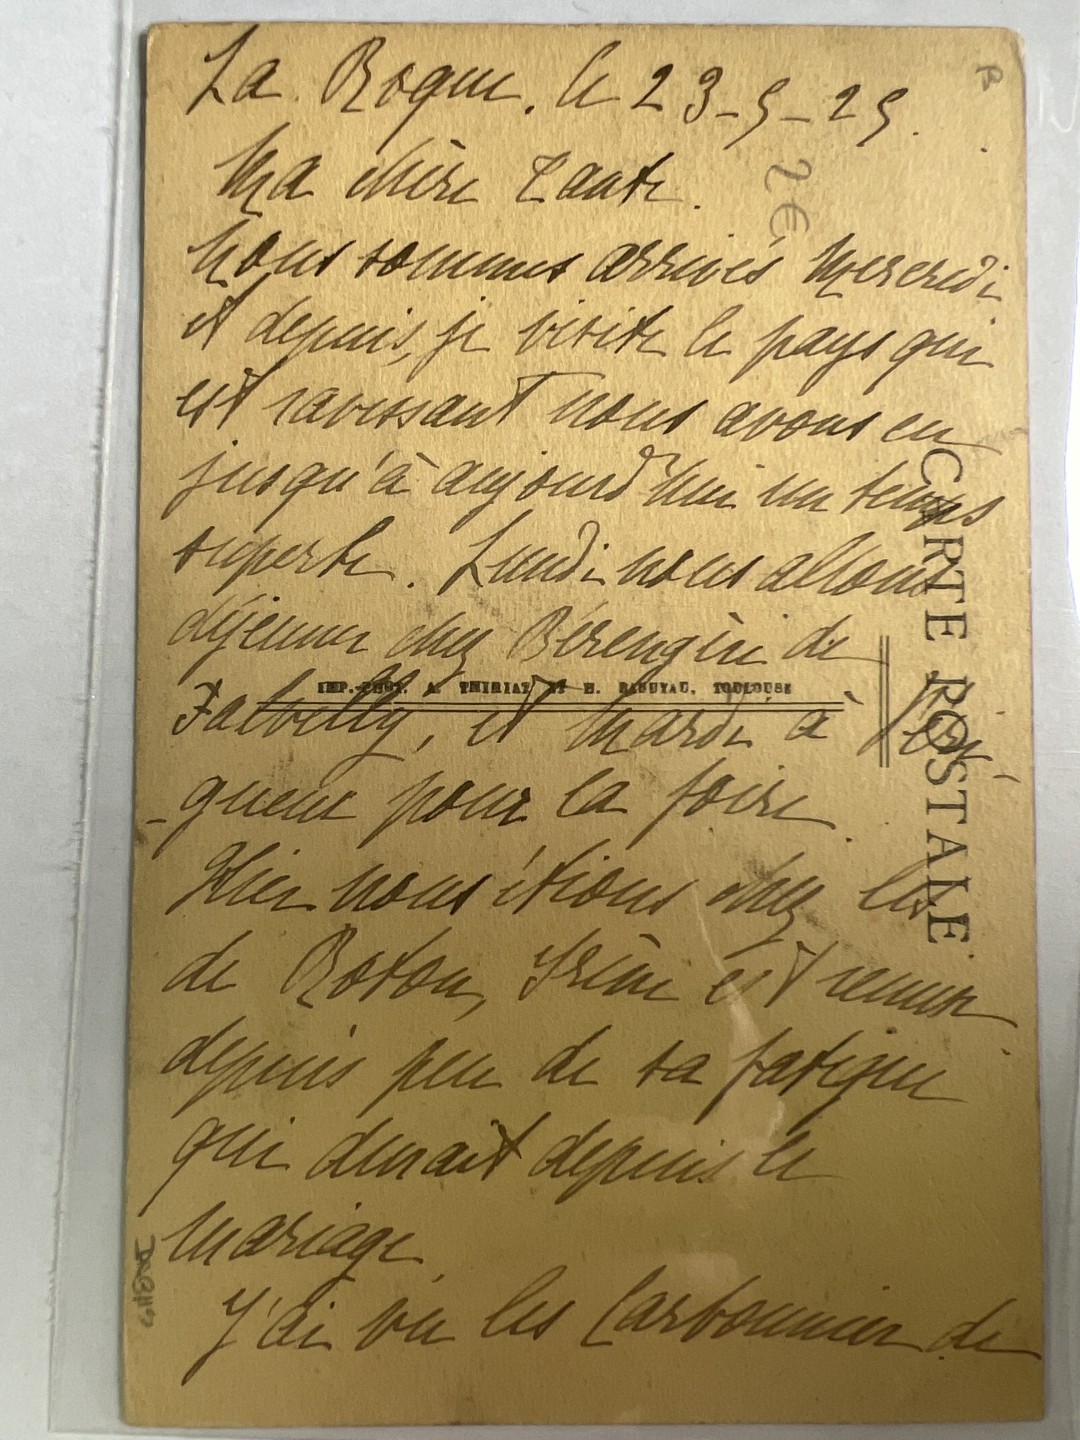 La Roque. le 23-5-25.
Ma chère Tante.
Nous sommes arrivés Mercredi
et depuis, je visite le pays qui
est ravissant nous avons eu
jusqu'à aujourd'hui un temps
superbe. Lundi nous allons
déjeuner chez Bérengère de
IMP.-PHOT. A. THIRIAT ET H. BASUYAU, TOULOUSE
et Mardi à
-gueux pour la foire.
Hier nous étions chez les
de Roton, Irène est remise
depuis peu de sa fatigue
qui durait depuis le
mariage.
J'ai vu les Carbonnier de
CARTE POSTALE
2€